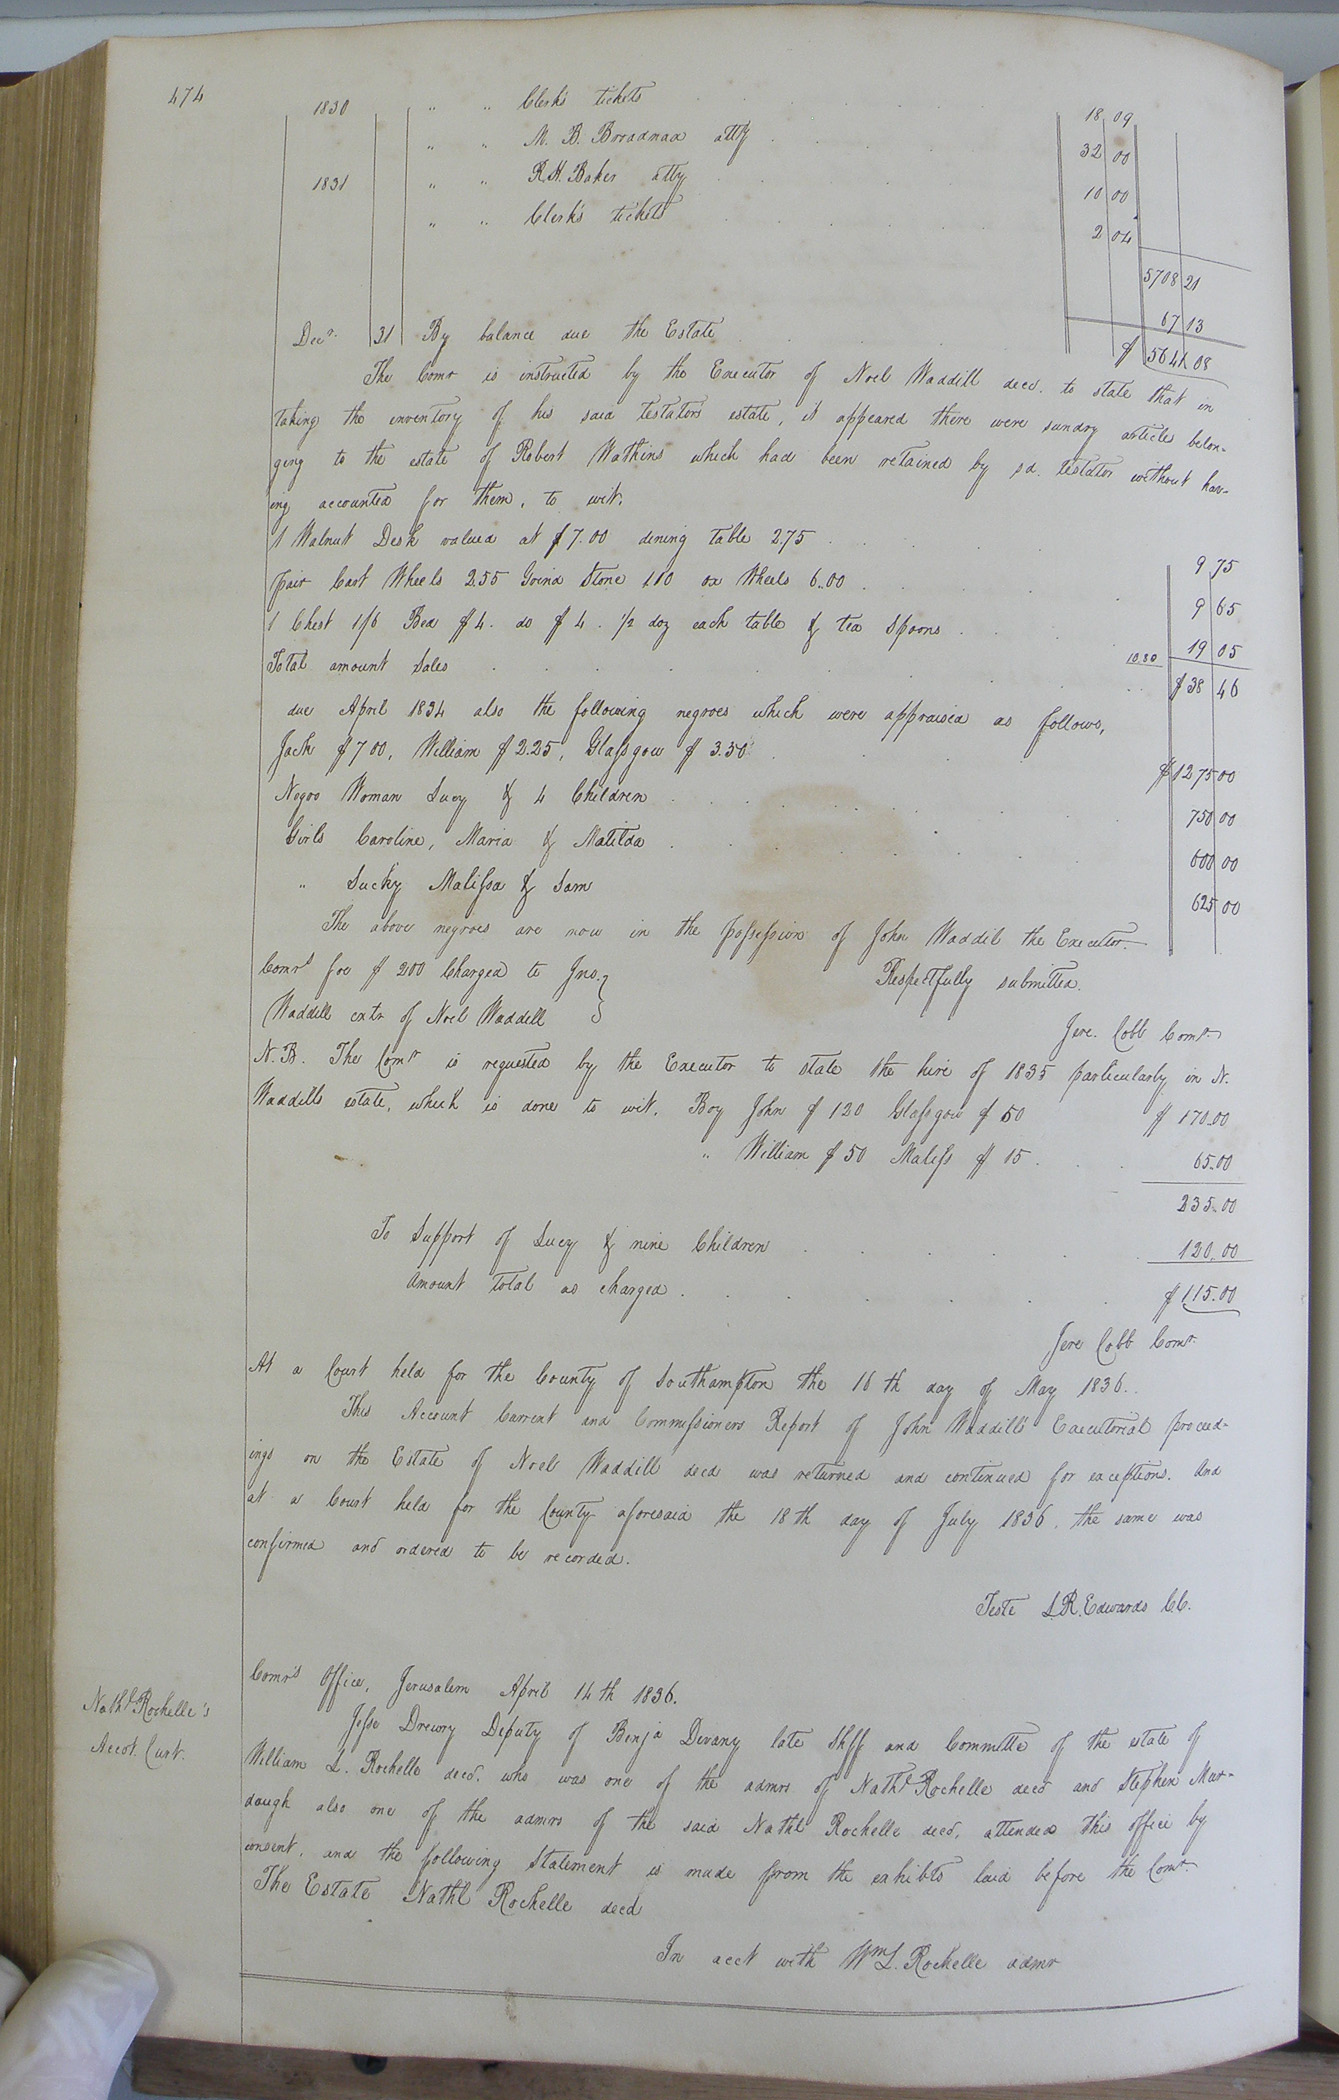 474
1830 " " Clerk's tickets 18 09
" " M. B. Broadnax atty 32 00
1831 " " R. H. Baker atty 10 00
" " Clerk's tickets 2 04
5708 21
67 13
Decr. 31 By balance due the Estate $ 5641 08
The Comr is instructed by the Executor of Noel Waddill decd. to state that in
taking the inventory of his said testators estate, it appeared there were sundry articles belon-
ging to the estate of Robert Watkins which had been retained by sd. testator without hav-
ing accounted for them, to wit,
1 Walnut Desk valued at $7.00 dining table 2.75 9 75
pair Cart Wheels 2.55 Grind Stone 1.10 ox Wheels 6..00 9 65
1 Chest 1/6 Bed $4. do $4. ½ doz each table & tea Spoons 10.80 19 05
Total amount Sales $38 46
due April 1834 also the following negroes which were appraised as follows,
Jack $700, William $2.25, Glasgow $3.50 $1275 00
Negro Woman Lucy & 4 Children 750 00
Girls Caroline, Maria & Matilda 600 00
" Sucky Malissa & Sam 625 00
The above negroes are now in the possession of John Waddil the Executor.
Comrs fee $2.00 Charged to Jno. } Respectfully submitted.
Waddill extr of Noel Waddill
Jere. Cobb Comr
N. B. The Comr is requested by the Executor to state the hire of 1835 particularly in N.
Waddills estate, which is done to wit, Boy John $120 Glasgow $50 $170.00
" William $50 Maliss $15. 65..00
235..00
To Support of Lucy & nine Children 120..00
Amount total as charged. $115.00
Jere Cobb Comr.
At a Court held for the County of Southampton the 16th day of May 1836.
This Account Current and Commissioners Report of John Waddill's Executorial proceed-
ings on the Estate of Noel Waddill decd was returned and continued for exceptions. And
at a Court held for the County aforesaid the 18th day of July 1836, the same was
confirmed and ordered to be recorded.
Teste L. R. Edwards CC.
Nathl Rochelle's
Accot. Curt.
Comr's Office, Jerusalem April 14th 1836.
Jesse Drewry Deputy of Benja Devany late Shff and Committe of the estate of
William L. Rochelle decd. who was one of the admrs of Nathl Rochelle decd and Stephen Mur-
daugh also one of the admrs of the said Nathl Rochelle decd, attended this office by
consent, and the following Statement is made from the exhibts laid before the Comr
The Estate Nathl Rochelle decd
In acct with Wm L. Rochelle admr